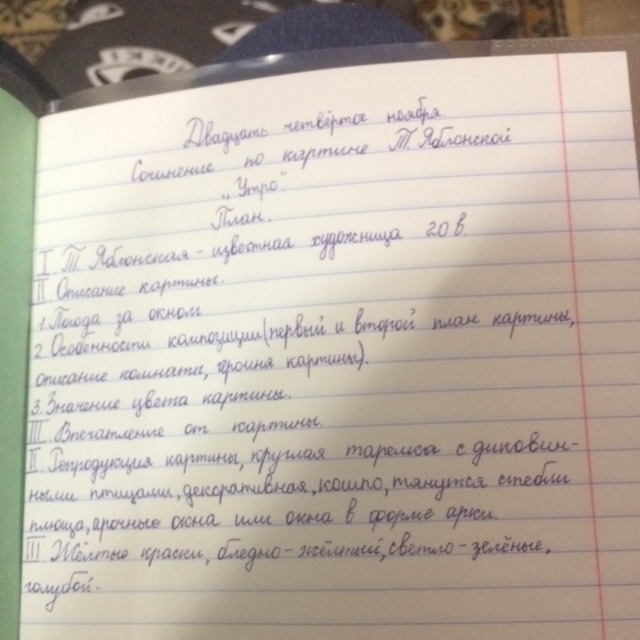 Двадцать четвёртое ноября.
Сочинение по картине Т. Яблонской
„Утро".
План.
I. Т. Яблонская - известная художница 20 в.
II. Описание картины.
1. Погода за окном
2. Особенности композиции (первый и второй план картины,
описание комнаты, героиня картины).
3. Значение цвета картины.
III. Впечатление от картины.
II. Репродукция картины, круглая тарелка с диковин-
ными птицами, декоративная, кошпо, тянутся стебли
плюща, арочные окна или окна в форме арки.
III Жёлтые краски, бледно-жёлтый, светло-зелёные,
голубой.